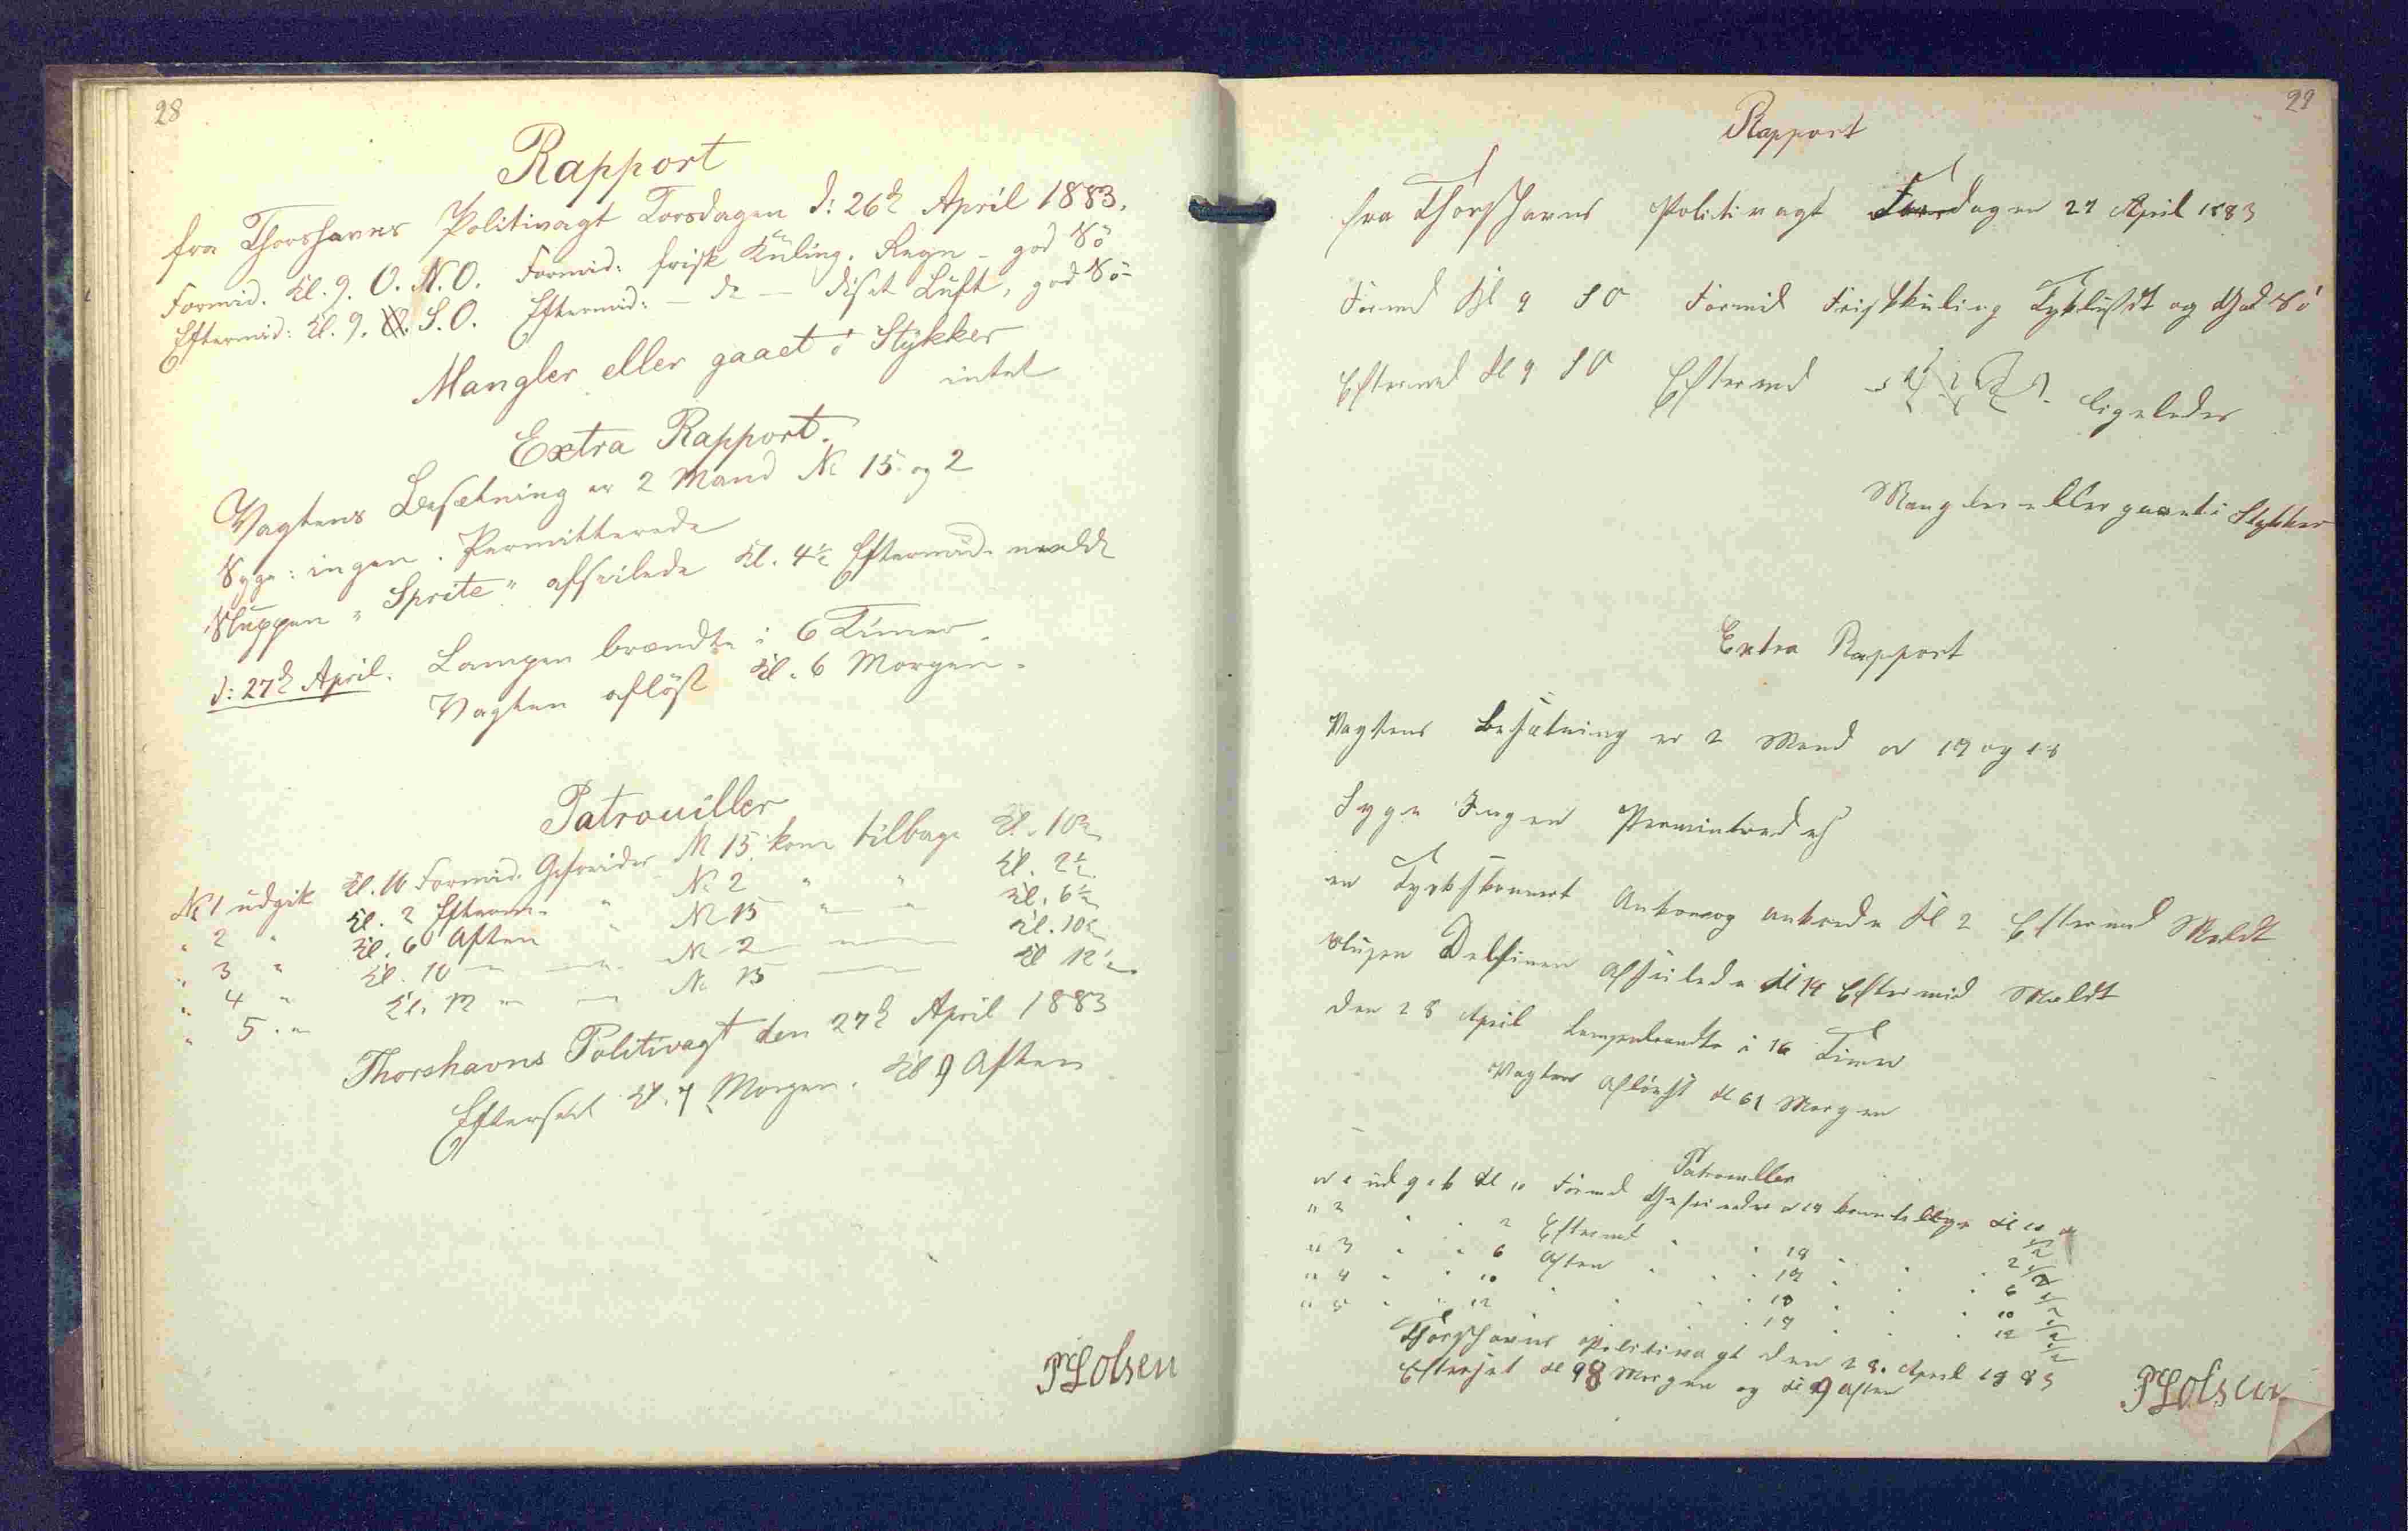 28
Rapport
fra Thorshavns Politivagt Torsdagen d: 26de April 1883.
Formid. Kl. 9. O. N. O. Formid: frisk Kuling. Regn - god Sö
Eftermid: Kl. 9. S. O. Eftermid: - do - diset Luft, god Sö-
Mangler eller gaaet i Stykker
intet
Extra Rapport.
Vagtens Besætning er 2 Mand No 15 og 2
Syge: ingen. Permitterede
Sluppen "Sprite" afseilede Kl. 4½ Eftermid. meldt
d: 27de April. Lampen brændte i 6 Timer.
Vagten aflöst Kl. 6 Morgen.
Patrouiller
No 1 udgik Kl. 10 Formid. Gefreider No 15 kom tilbage Kl. 10½
" 2 " Kl. 2 Efterm. " No 2 " " Kl. 2½
" 3 " Kl. 6 Aften " No 15 " " Kl. 6½
" 4 " Kl. 10 — — No 2 — Kl. 10½
" 5 " Kl. 12 " — No 15 — Kl 12½
Thorshavns Politivagt den 27de April 1883
Efterseet Kl. 7 Morgen. Kl 9 Aften
PLOlsen
29
Rapport
fra Thorshavns Politivagt dagen 27 April 1883
Formd Kl 9 SO Formid Friskkuling Tyklüft og God Sö
Eftermd Kl 9 SO Eftermd ligeledes
Mangler eller gaaet i Stykker
Extra Rapport
Vagtens Besætning er 2 Mand No 19 og 18
Syge Ingen
en Tyskskonnert Ankom og ankrede Kl 2 Eftermd Meldt
Slupen Delfinen Afseilede Kl Eftermid Meldt
den 28 April Lampenbrandte i Timer
Vagten Aflöst Kl Morgen
Patrouiller
No 1 udgik Kl 10 Formd Gefreider No 19 kom tilbage Kl 10 ½
" 2 " " 2 Eftermd " " 18 " " " 2 ½
" 3 " " 6 Aften " " 19 " " " 6 ½
" 4 " " 10 " " " 18 " " " 10 ½
" 5 " " 12 " " " 19 " " " 12 ½
Thorshavns Politivagt den 28. April 1883
Efterset Kl 8 Morgen og Kl 9 Aften
PLOlsen